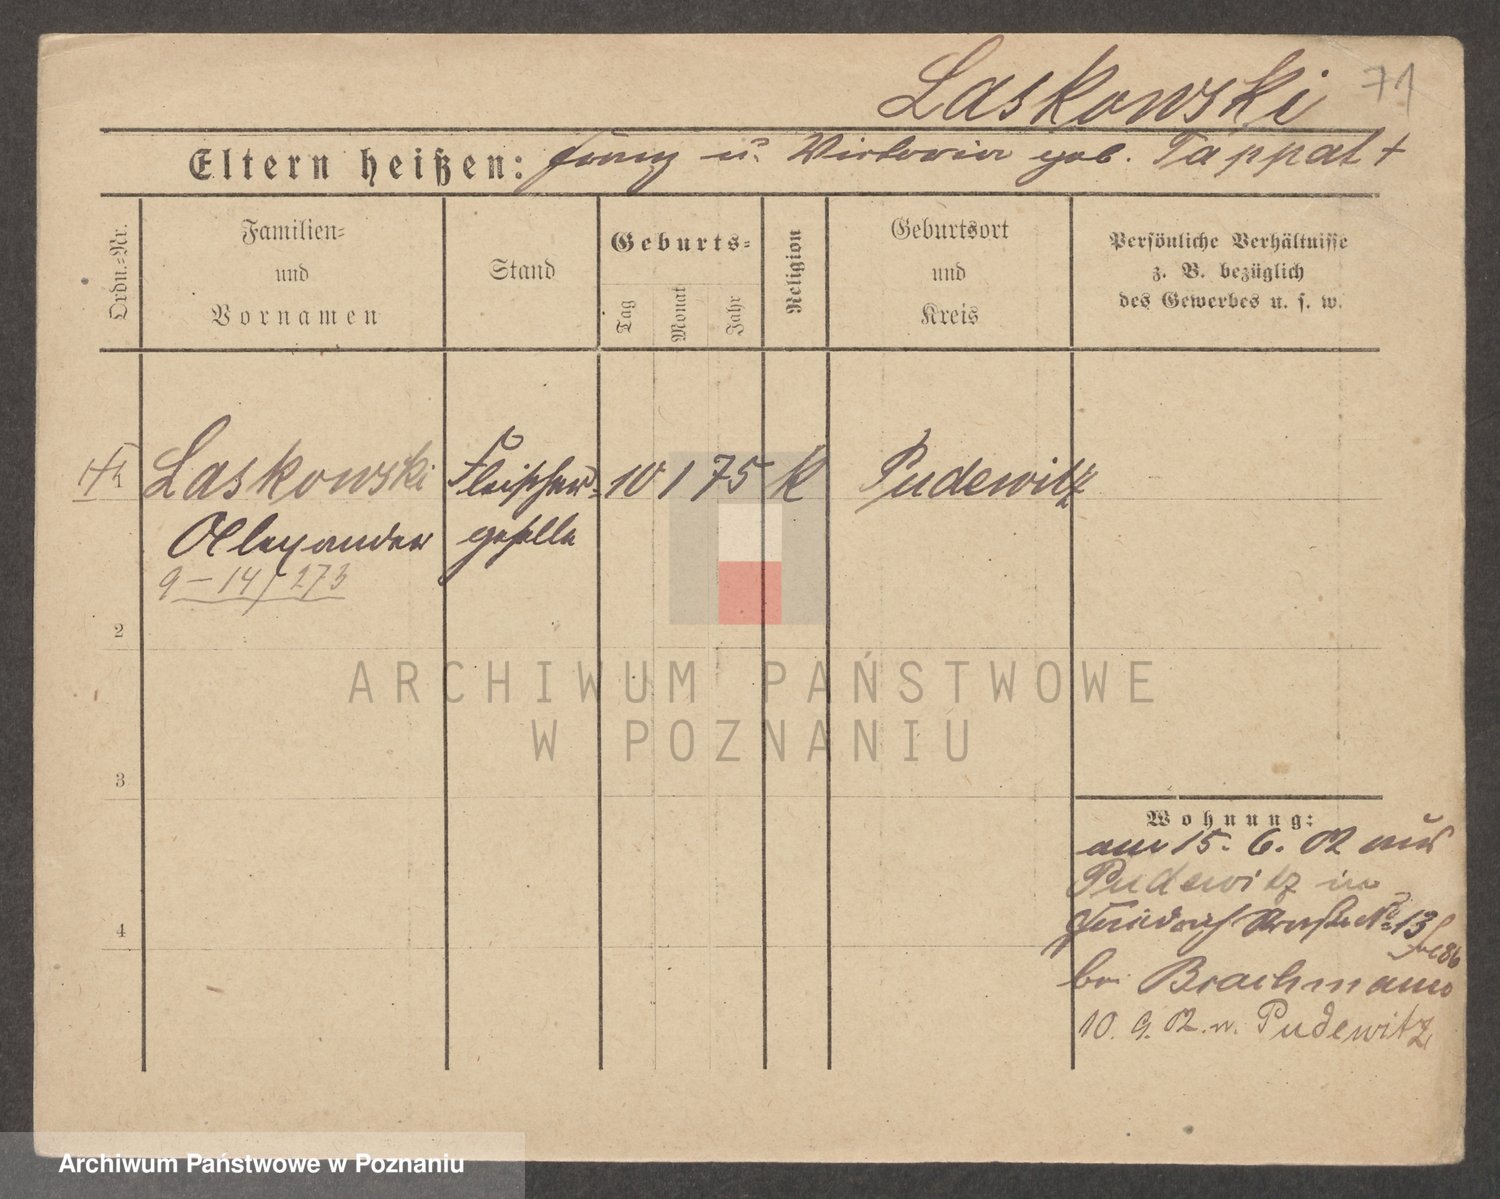 Laskowski 71
Eltern heißen: Franz u. Victoria geb. Tappat +
Ordn.-Nr.
Familien-
und
Vornamen
Stand
Geburts-
Tag
Monat
Jahr
Religion
Geburtsort
und
Kreis
Persönliche Verhältnisse
z. B. bezüglich
des Gewerbes u. s. w.
Laskowski Fleischer- 10 1 75 K Pudewitz
Allexander geselle
9-14/273
2
ARCHIWUM PAŃSTWOWE
W POZNANIU
3
Wohnung:
am 15. 6. 02 aus
Pudewitz in
4
Friedrich Straße No 13
bei Brachmann
10. 9. 02. n. Pudewitz
Archiwum Państwowe w Poznaniu